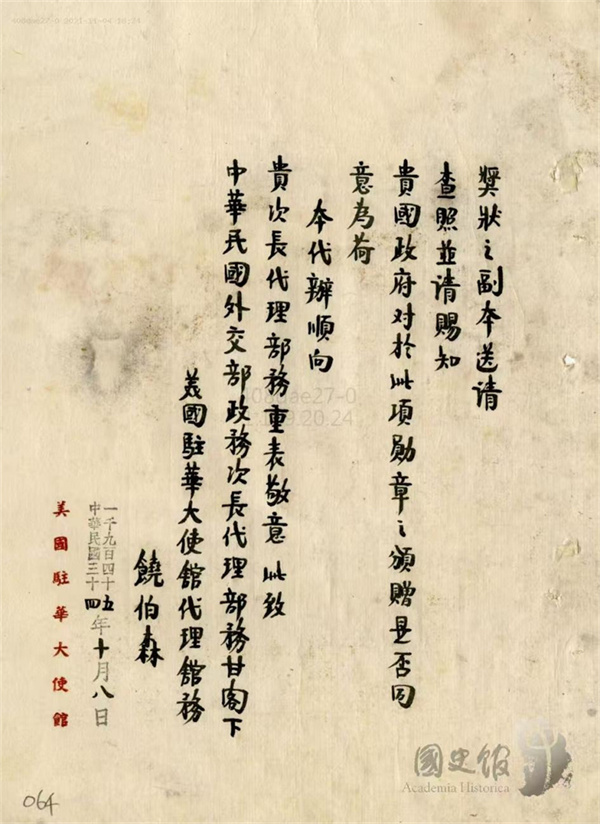 奬狀之副本送请
查照並请賜知
貴國政府对於此項勛章之頒贈是否同
意為荷
本代辦順向
貴次長代理部務重表敬意此致
中華民國外交部政務次長代理部務甘閣下
美國駐華大使館代理館務
饒伯森
一千九百四十五
中華民國三十四年十月八日
美國駐華大使館
064
國史館
Academia Historica